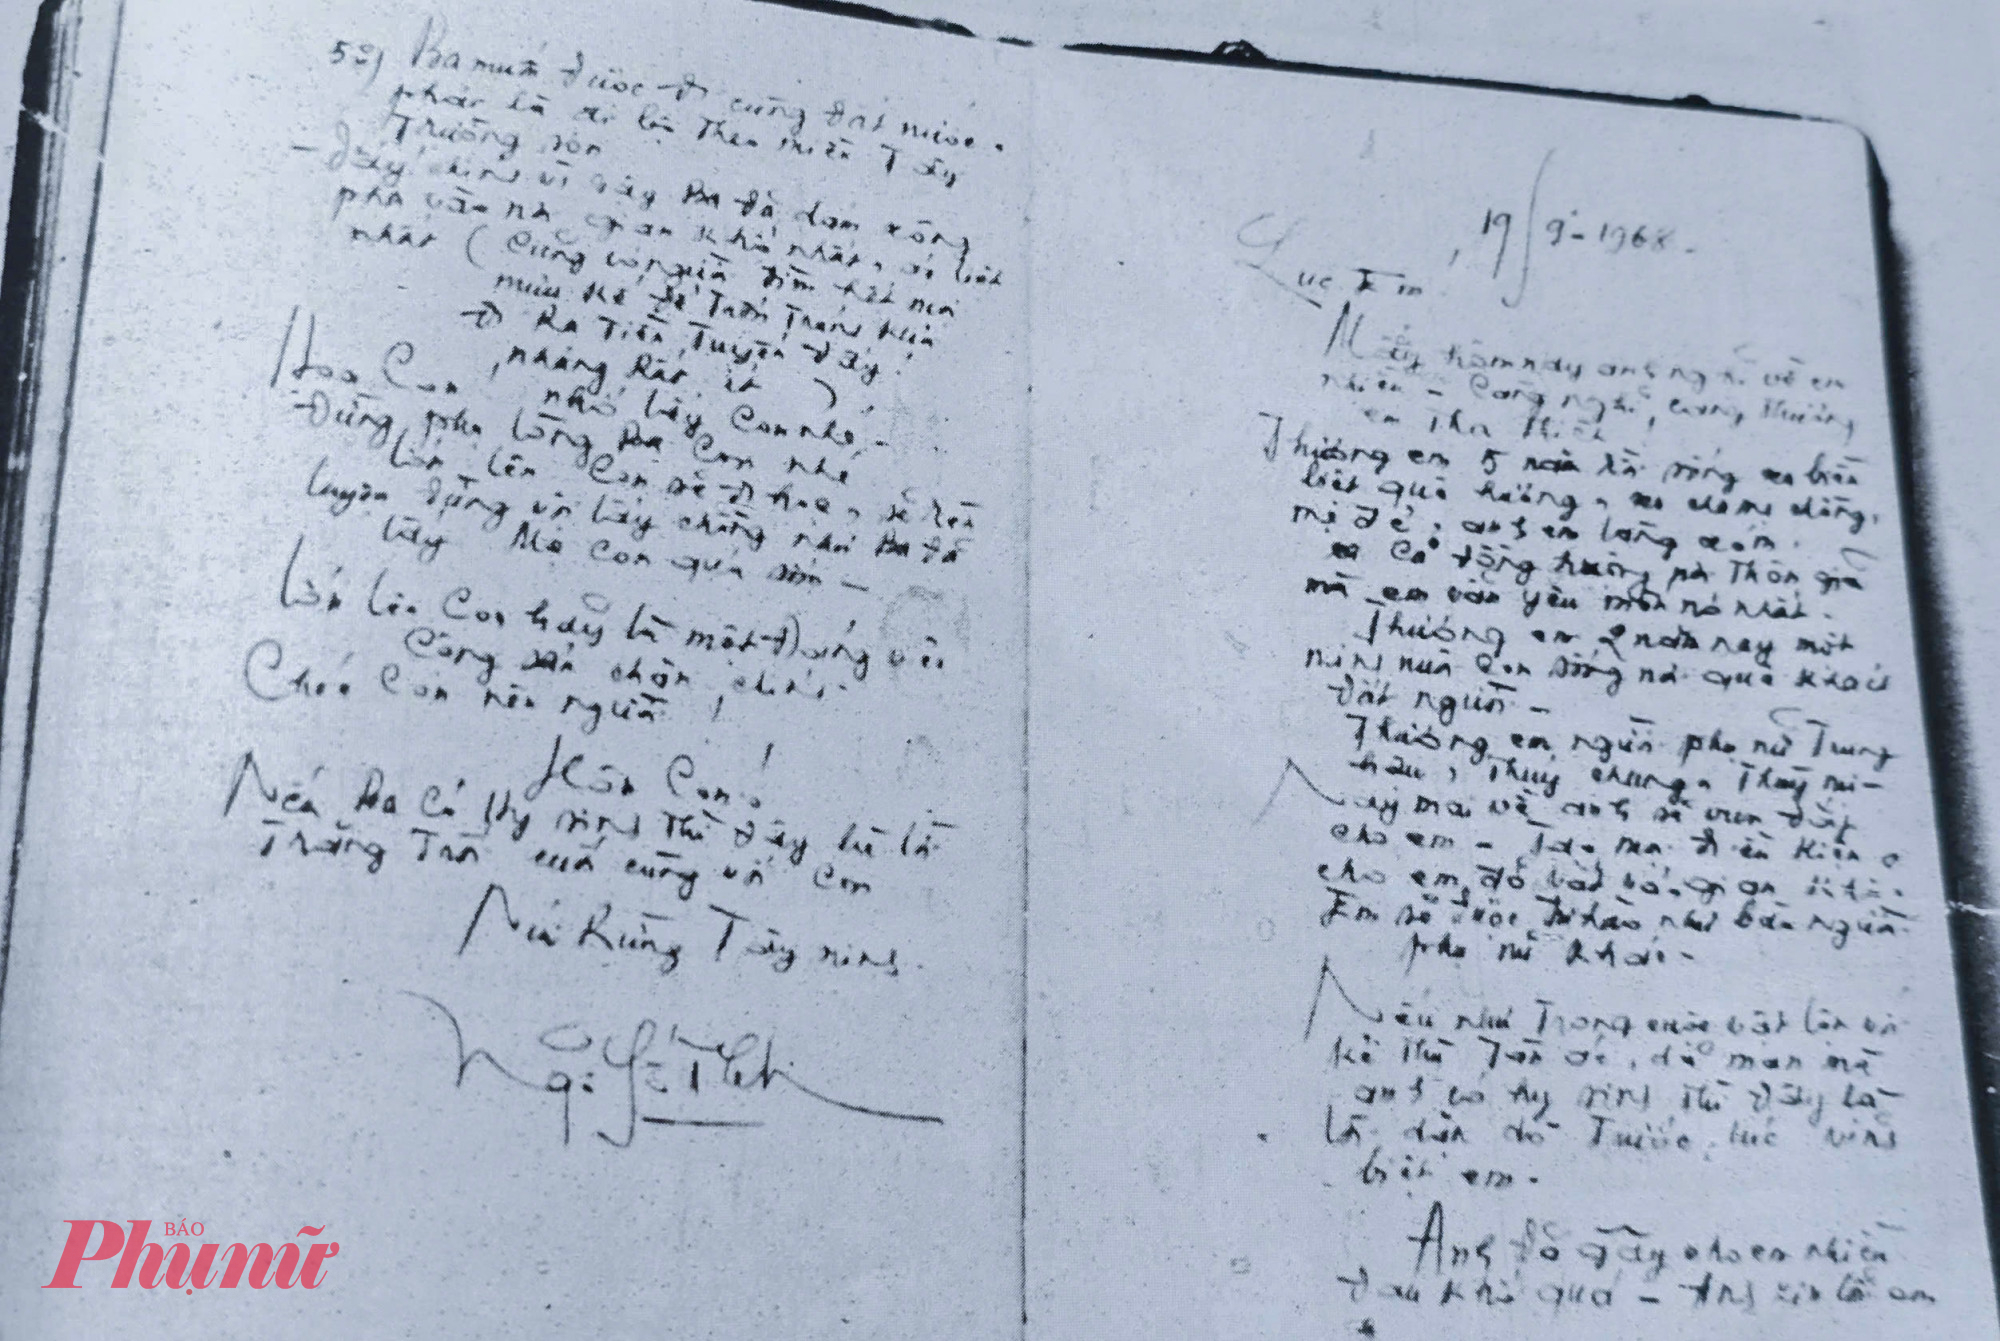 5º) Ba muốn được đi cùng đất nước.
phải là đi lên theo miền Tây
Trường sơn
- Đấy chính vì vậy Ba đã dám xông
pha vào nơi gian khổ nhất, ác liệt
nhất (Cũng có người tìm hết mọi
mưu kế để trốn tránh
đi ra tiền tuyến đấy
nhưng rất ít)
Hoa Con, nhớ lấy Con nhé -
Đừng phụ lòng Ba Con nhé
lớn lên Con sẽ đi học, sẽ rèn
luyện đừng vội lấy chồng như Ba đã
lấy Mẹ Con quá sớm -
Lớn lên Con hãy là một Đảng viên
Cộng sản chân chính.
Chúc Con nên người!
Hôn Con!
Nếu Ba có Hy sinh thì đây là lời
Trăng Trối cuối cùng với Con
Núi Rừng Tây ninh
19/9-1968.
Lục Em
Mấy hôm nay anh nghĩ về em
nhiều - Càng nghĩ, càng thương
em tha thiết
Thương em 5 năm lần sống xa biền
biệt quê hương, xa chồng,
mẹ đẻ, anh em làng xóm.
xa cả đồng hương nơi thôn
mà em vẫn yêu mến nó nhất.
Thương em 2 năm nay một
mình nuôi con sống nơi quê khách
đất người -
Thương em người phụ nữ Trung
hậu, thuỷ chung,
Ngày mai về anh sẽ vun đắp
cho em - Tạo mọi điều kiện
cho em đỡ vất vả, gian khổ.
Em sẽ được tự hào như bao người
phụ nữ khác -
Nếu như trong cuộc vật lộn với
kẻ thù tàn ác, dã man mà
anh có hy sinh thì đây là
lời dặn dò trước lúc vĩnh
biệt em.
Anh đã gây cho em nhiều
đau khổ quá - Anh xin lỗi em
BÁO
Phụ nữ